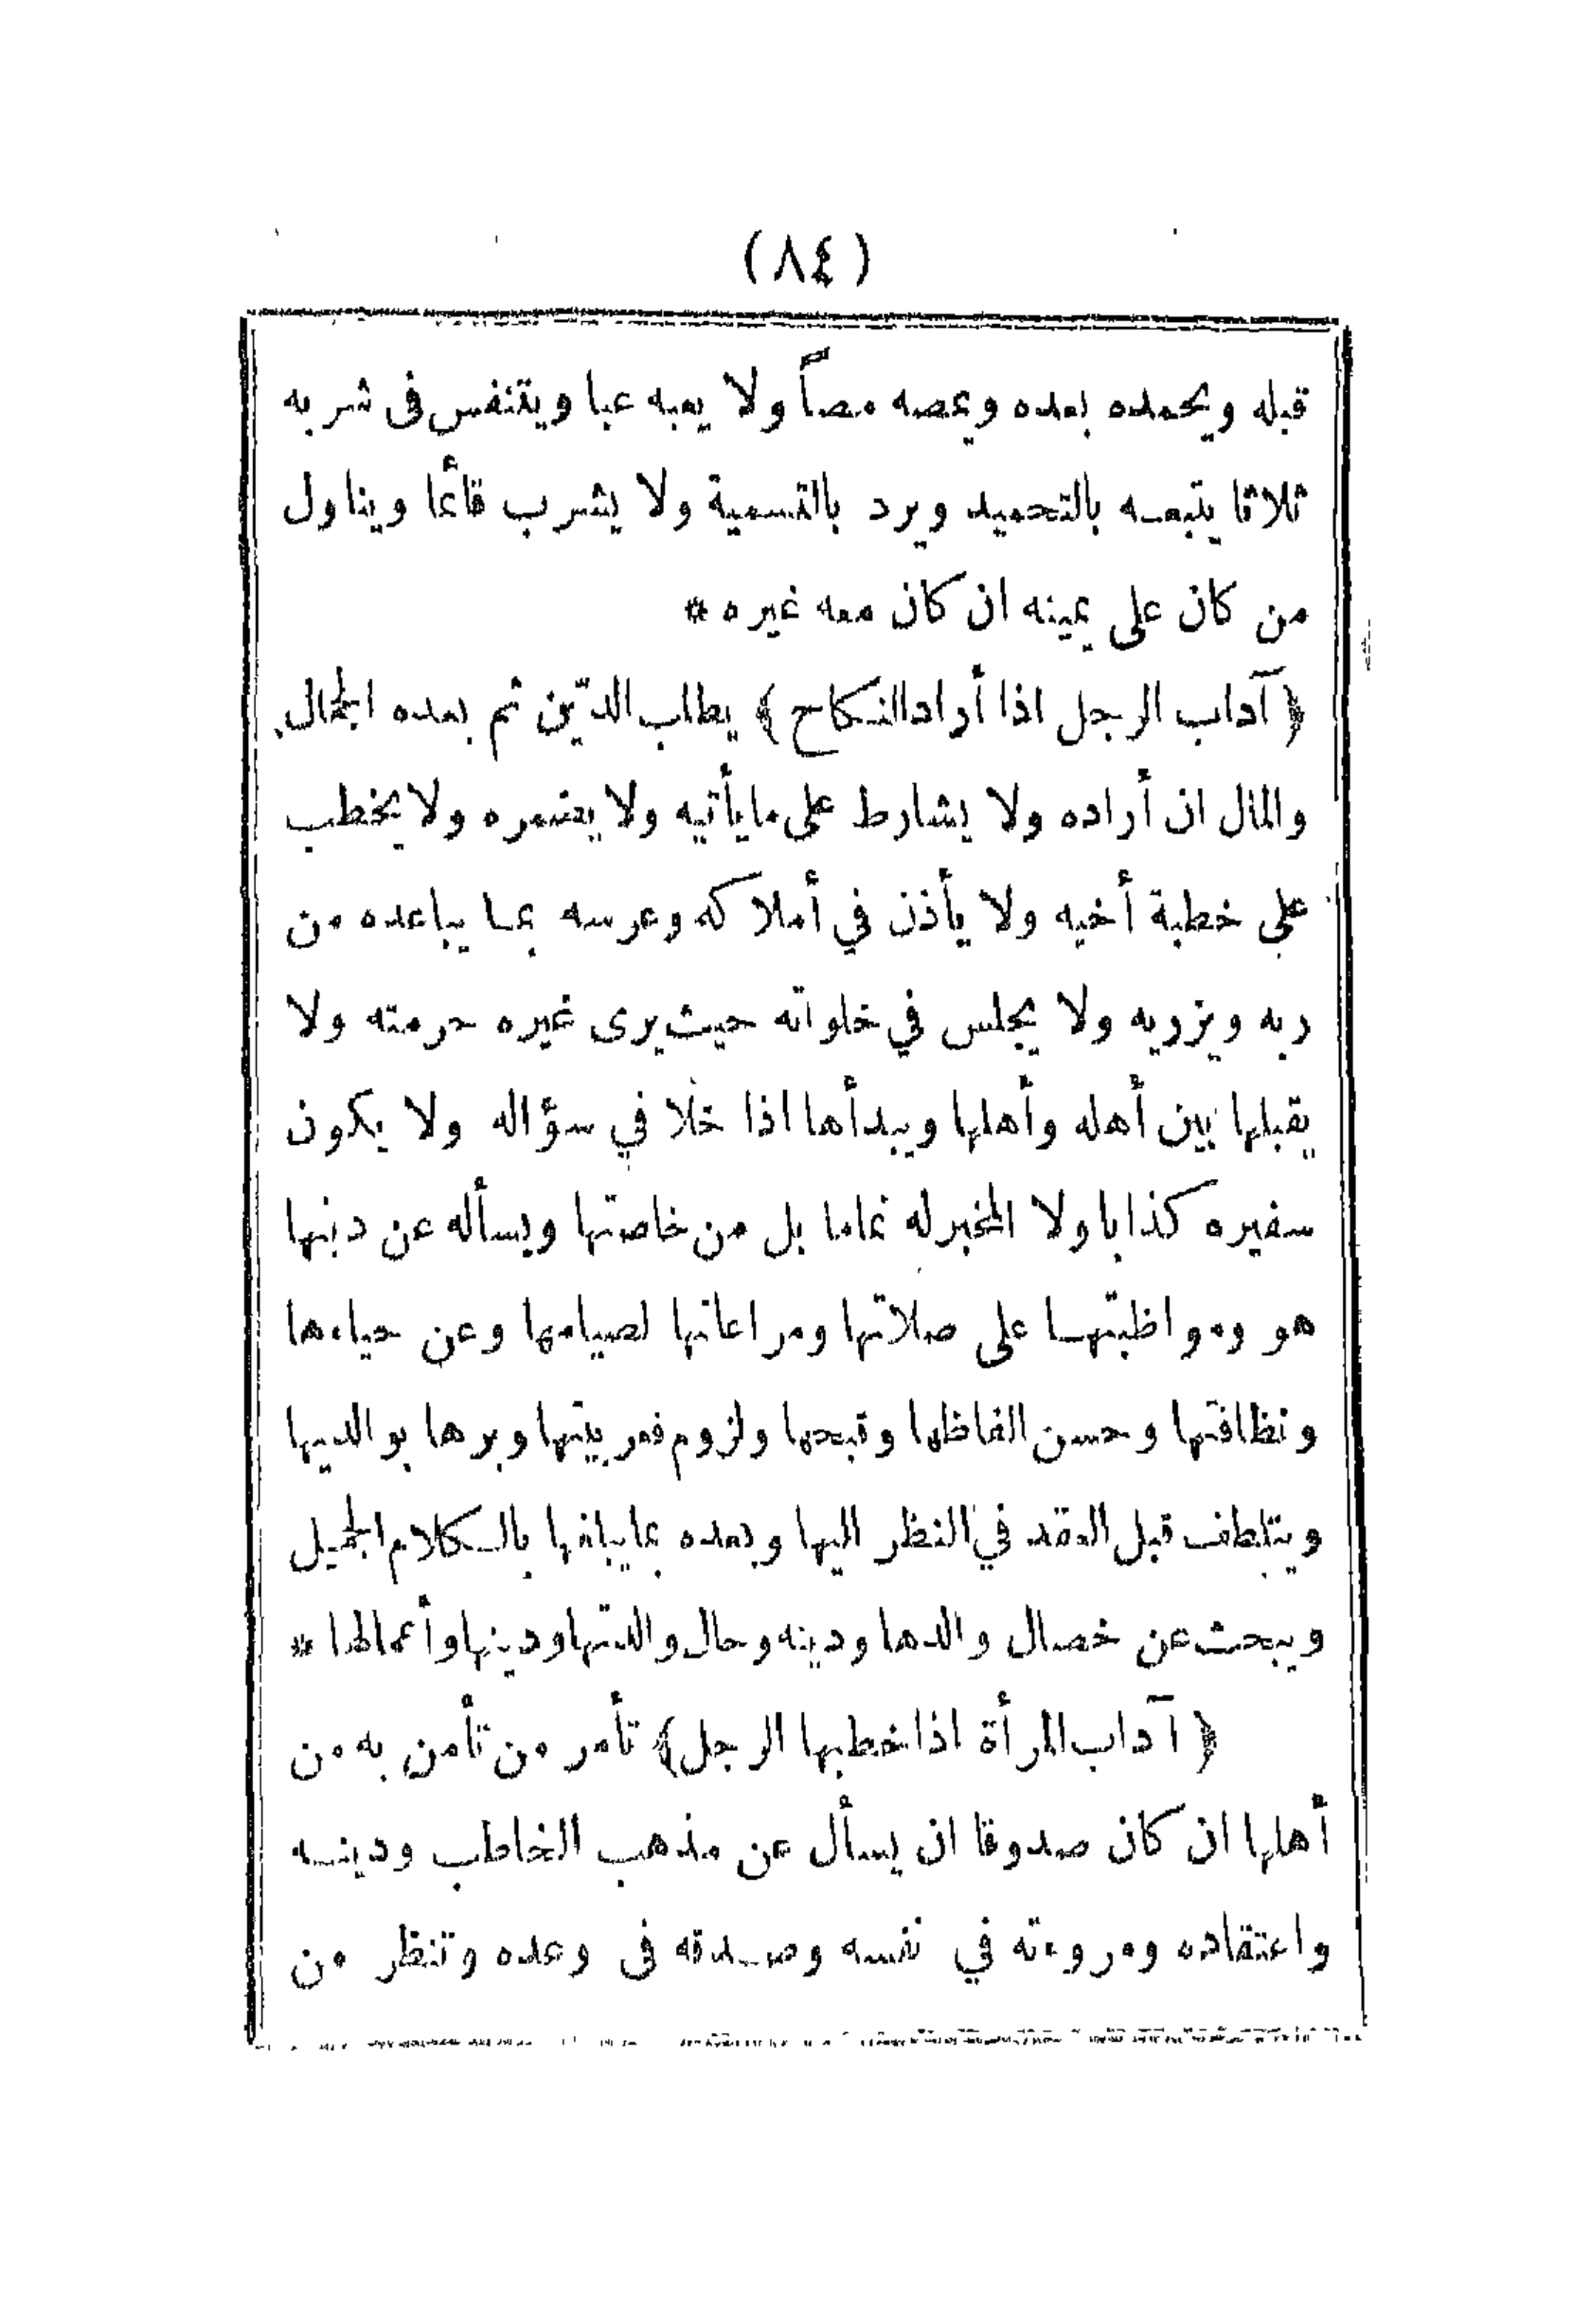 (٨٤)
قبله ويحمده بعده ويمصه مصاً ولا يعبه عبا ويتنفس فى شربه
ثلاثا يتبعه بالتحميد ويرد بالتسمية ولا يشرب قائما ويناول
من كان على يمينه ان كان معه غيره *
﴿ آداب الرجل اذا أراد النكاح ﴾ يطلب الدّين ثم بعده الجمال
والمال ان أراده ولا يشارط على ما يأتيه ولا يضمره ولا يخطب
على خطبة أخيه ولا يأذن في أملاكه وعرسه بما يباعده من
ربه ويزريه ولا يجلس في خلواته حيث يرى غيره حرمته ولا
يقبلها بين أهله وأهلها ويبدأها اذا خلا في سؤاله ولا يكون
سفيره كذابا ولا المخبر له نماما بل من خاصتها ويسأله عن دينها
هو ومواظبتها على صلاتها ومراعاتها لصيامها وعن حياءها
ونظافتها وحسن الفاظها وقبحها ولزوم قعر بيتها وبرها بوالديها
ويتلطف قبل العقد في النظر اليها وبعده بما يبلغها بالكلام الجميل
ويبحث عن خصال والدها ودينه وحال والدتها ودينها وأعمالها *
﴿ آداب المرأة اذا خطبها الرجل ﴾ تأمر من تأمن به من
أهلها ان كان صدوقا ان يسأل عن مذهب الخاطب ودينه
واعتقاده ومروءته في نفسه وصدقه فى وعده وتنظر من